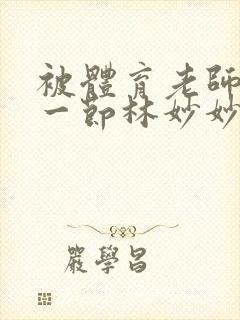 被體育老師
一節林妙妙
嚴學昌